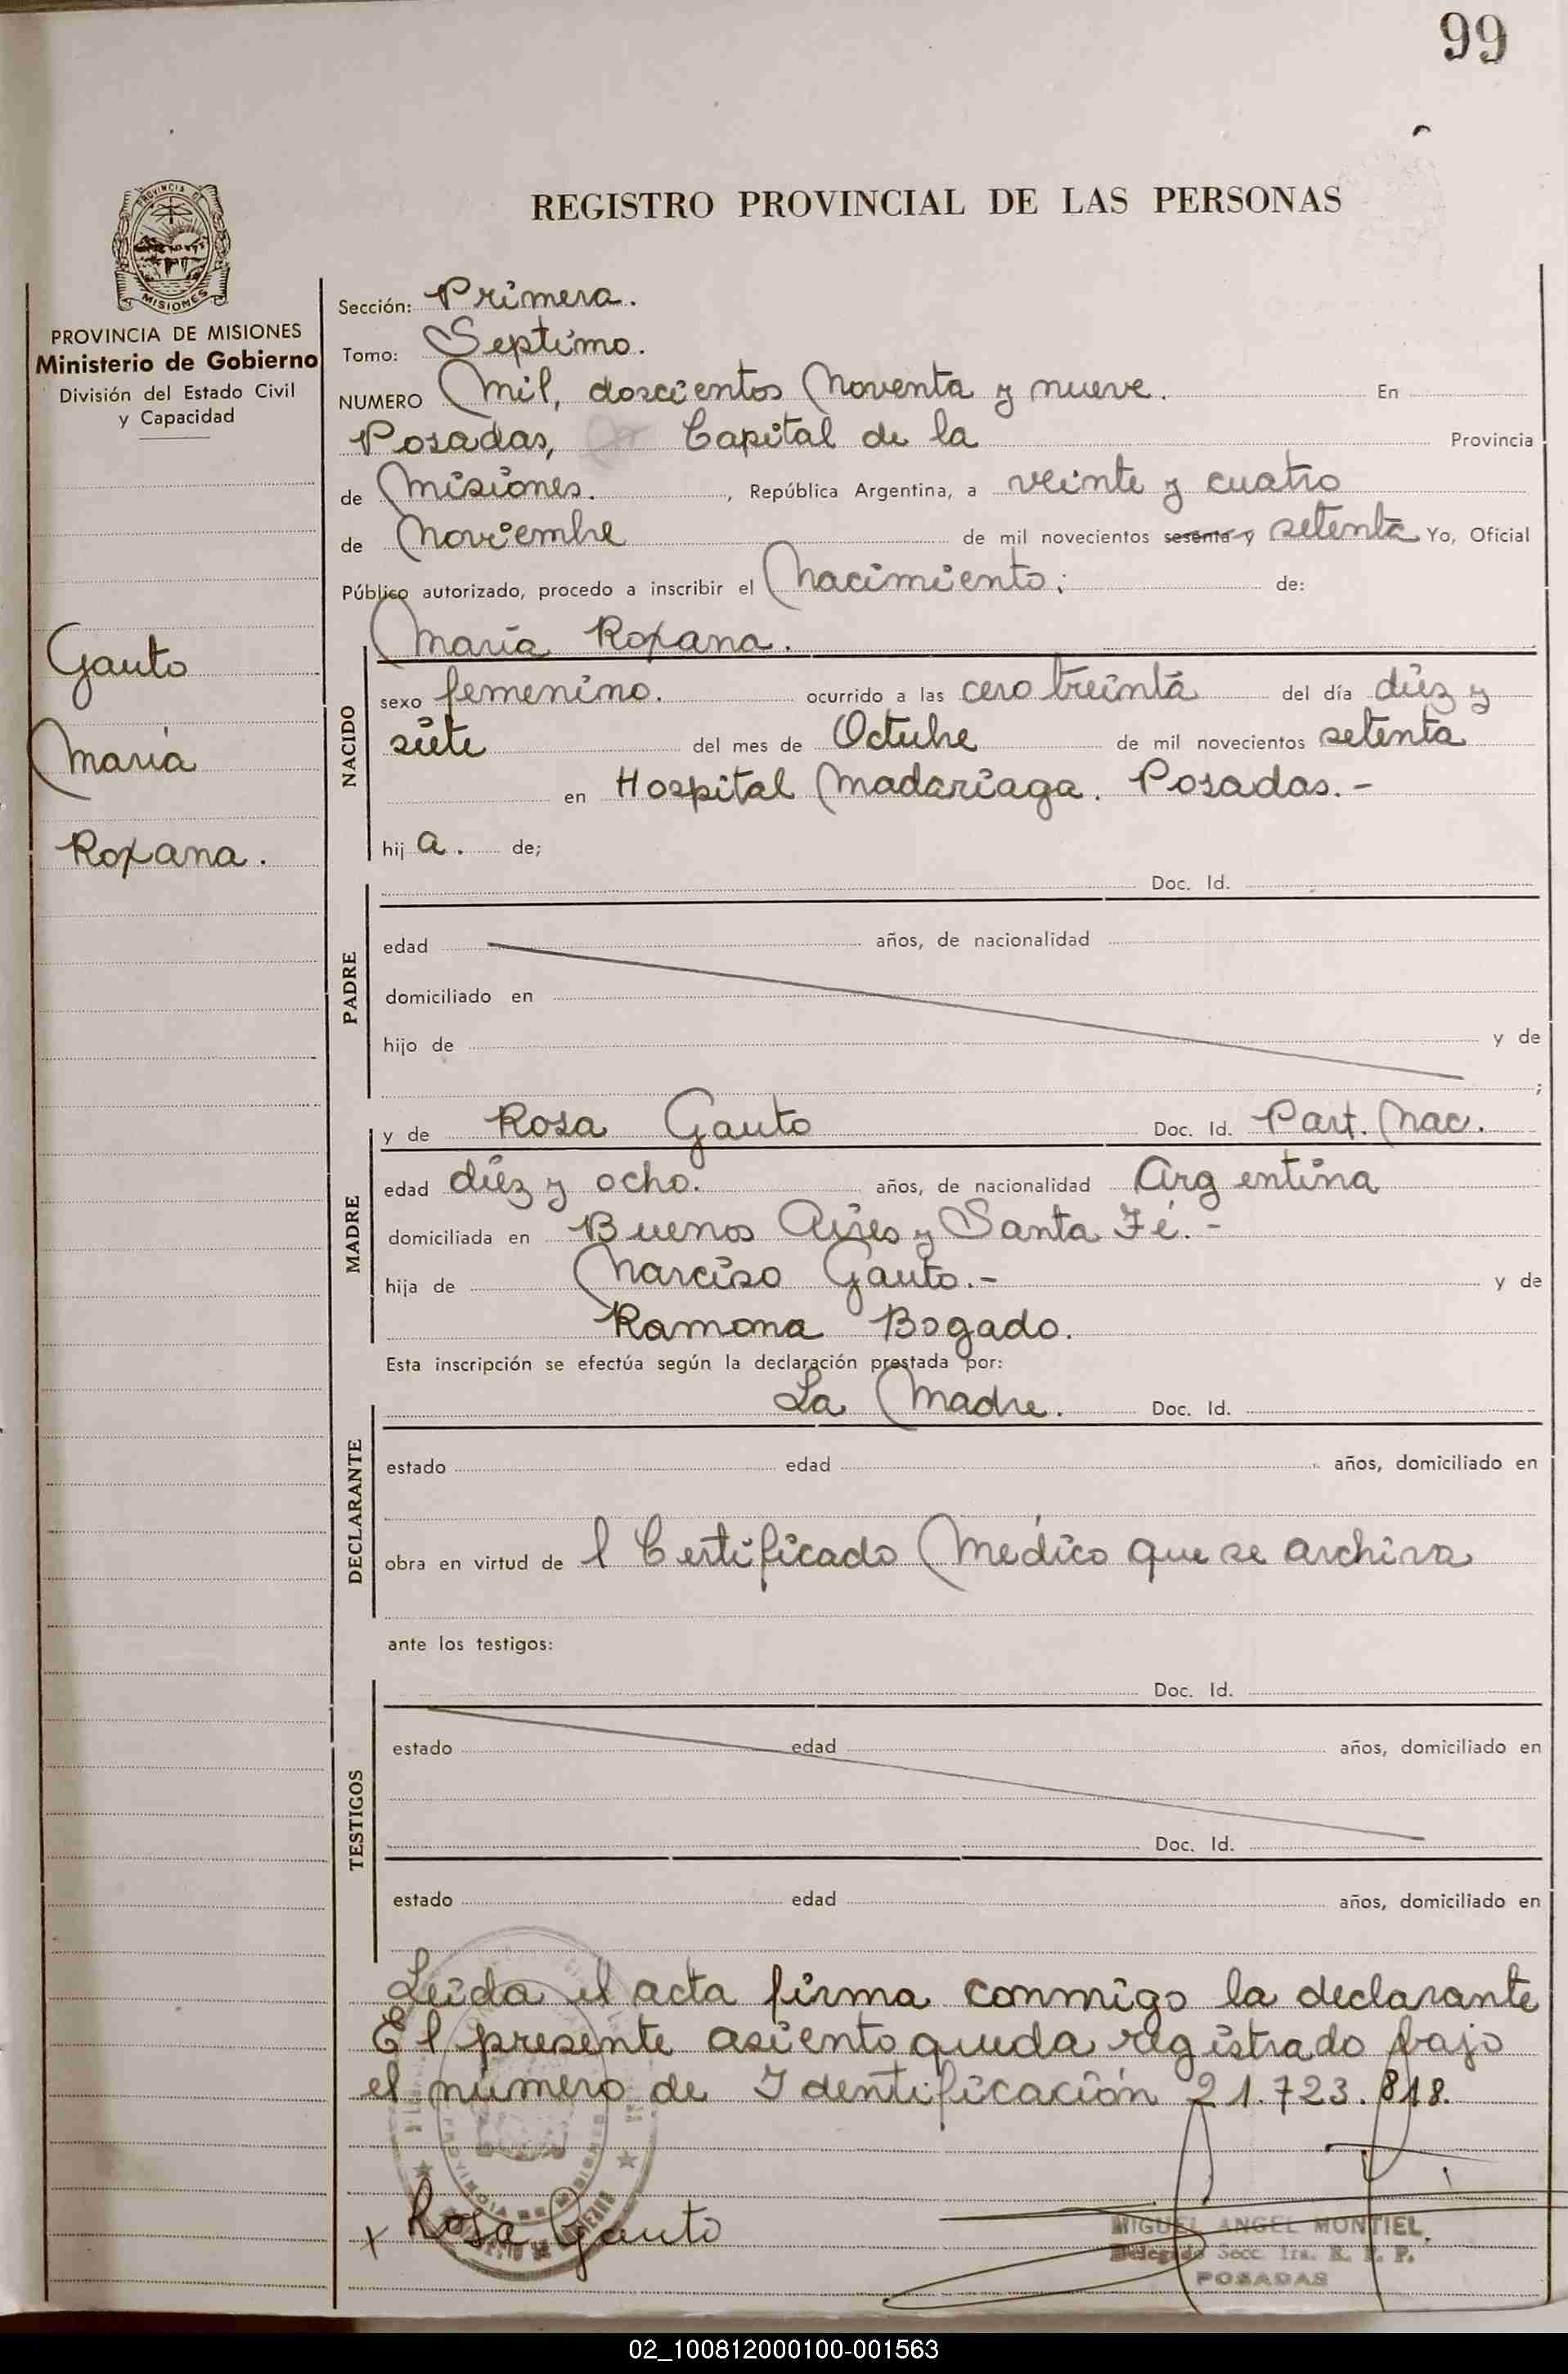 99
PROVINCIA DE
MISIONES
REGISTRO PROVINCIAL DE LAS PERSONAS
PROVINCIA DE MISIONES
Ministerio de Gobierno
División del Estado Civil
y Capacidad
Gauto
María
Roxana.
Sección: Primera.
Tomo: Septimo.
NUMERO Mil, doscientos Noventa y nueve. En
Posadas, Capital de la Provincia
de Misiones. , República Argentina, a veinte y cuatro
de Noviembre de mil novecientos sesenta y setenta Yo, Oficial
Público autorizado, procedo a inscribir el Nacimiento; de:
María Roxana.
NACIDO
sexo femenino. ocurrido a las cero treinta del día diez y
siete del mes de Octubre de mil novecientos setenta
en Hospital Madariaga. Posadas.-
hij a. de;
PADRE
Doc. Id.
edad años, de nacionalidad
domiciliado en
hijo de y de
;
MADRE
y de Rosa Gauto Doc. Id. Part. Nac.
edad diez y ocho. años, de nacionalidad Argentina
domiciliada en Buenos Aires y Santa Fé.-
hija de Narciso Gauto.- y de
Ramona Bogado.
Esta inscripción se efectúa según la declaración prestada por:
DECLARANTE
La Madre. Doc. Id.
estado edad años, domiciliado en
obra en virtud de l Certificado Médico que se archiva
ante los testigos:
TESTIGOS
Doc. Id.
estado edad años, domiciliado en
Doc. Id.
estado edad años, domiciliado en
Leida el acta firma conmigo la declarante
El presente asiento queda registrado bajo
el número de Identificación 21.723.818.
x Rosa Gauto
MIGUEL ANGEL MONTIEL
Delegado Secc. 1ra. R. P. P.
POSADAS
02_100812000100-001563